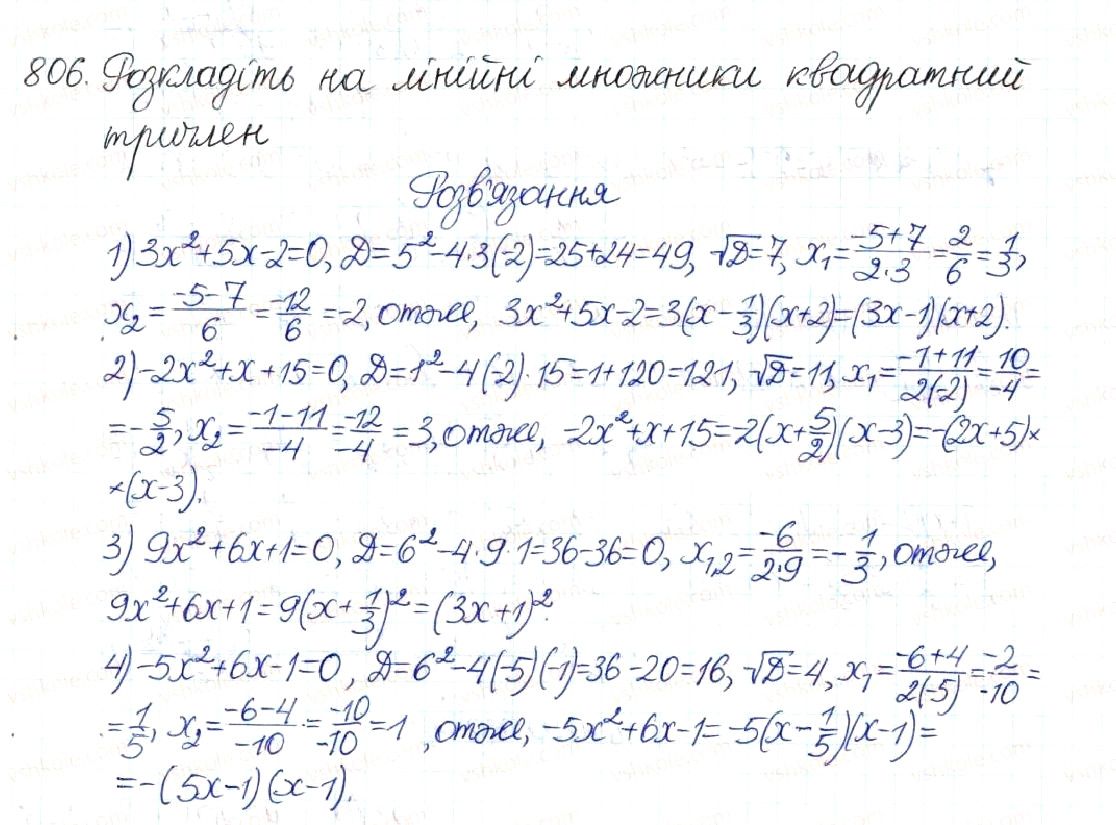 806. Розкладіть на лінійні множники квадратний
тричлен
Розв'язання
1) 3x²+5x-2=0, D=5²-4·3(-2)=25+24=49, √D=7, x₁=(-5+7)/(2·3)=2/6=1/3,
x₂=(-5-7)/6=-12/6=-2, отже, 3x²+5x-2=3(x-1/3)(x+2)=(3x-1)(x+2).
2) -2x²+x+15=0, D=1²-4(-2)·15=1+120=121, √D=11, x₁=(-1+11)/(2(-2))=10/-4=
=-5/2, x₂=(-1-11)/-4=-12/-4=3, отже, -2x²+x+15=-2(x+5/2)(x-3)=-(2x+5)×
×(x-3).
3) 9x²+6x+1=0, D=6²-4·9·1=36-36=0, x₁,₂=-6/(2·9)=-1/3, отже,
9x²+6x+1=9(x+1/3)²=(3x+1)².
4) -5x²+6x-1=0, D=6²-4(-5)(-1)=36-20=16, √D=4, x₁=(-6+4)/(2(-5))=-2/-10=
=1/5, x₂=(-6-4)/-10=-10/-10=1, отже, -5x²+6x-1=-5(x-1/5)(x-1)=
=-(5x-1)(x-1).